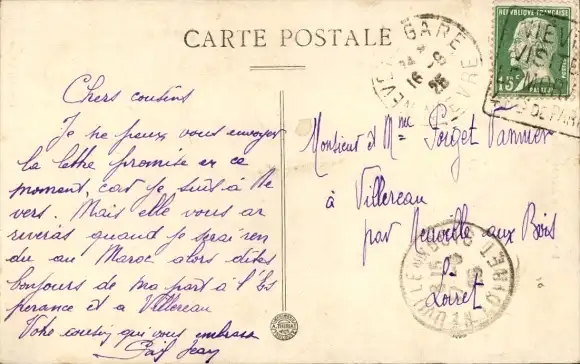 CARTE POSTALE
NEVERS GARE
16 - 8
25
NIEVRE
REPUBLIQUE FRANÇAISE
15c
POSTES
Chers cousins
Je ne peux vous envoyer
la lettre promise en ce
moment, car je suis à Ne
vers. Mais elle vous ar
rivera quand je serai ren
du au Maroc alors dites
bonjours de ma part à l'Es
perance et a Villereau
Votre cousin qui vous embrasse
Jean
Monsieur et Mme Poiget Vannier
à Villereau
par Neuville aux Bois
Loiret
NEUVILLE AUX BOIS
LOIRET